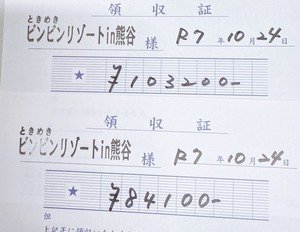 領収証
ときめき
ピンピンリゾートin熊谷 様 R7年10月24日
★ ¥103200-
領収証
ときめき
ピンピンリゾートin熊谷 様 R7年10月24日
★ ¥84100-
但
上記正に領収いたしました